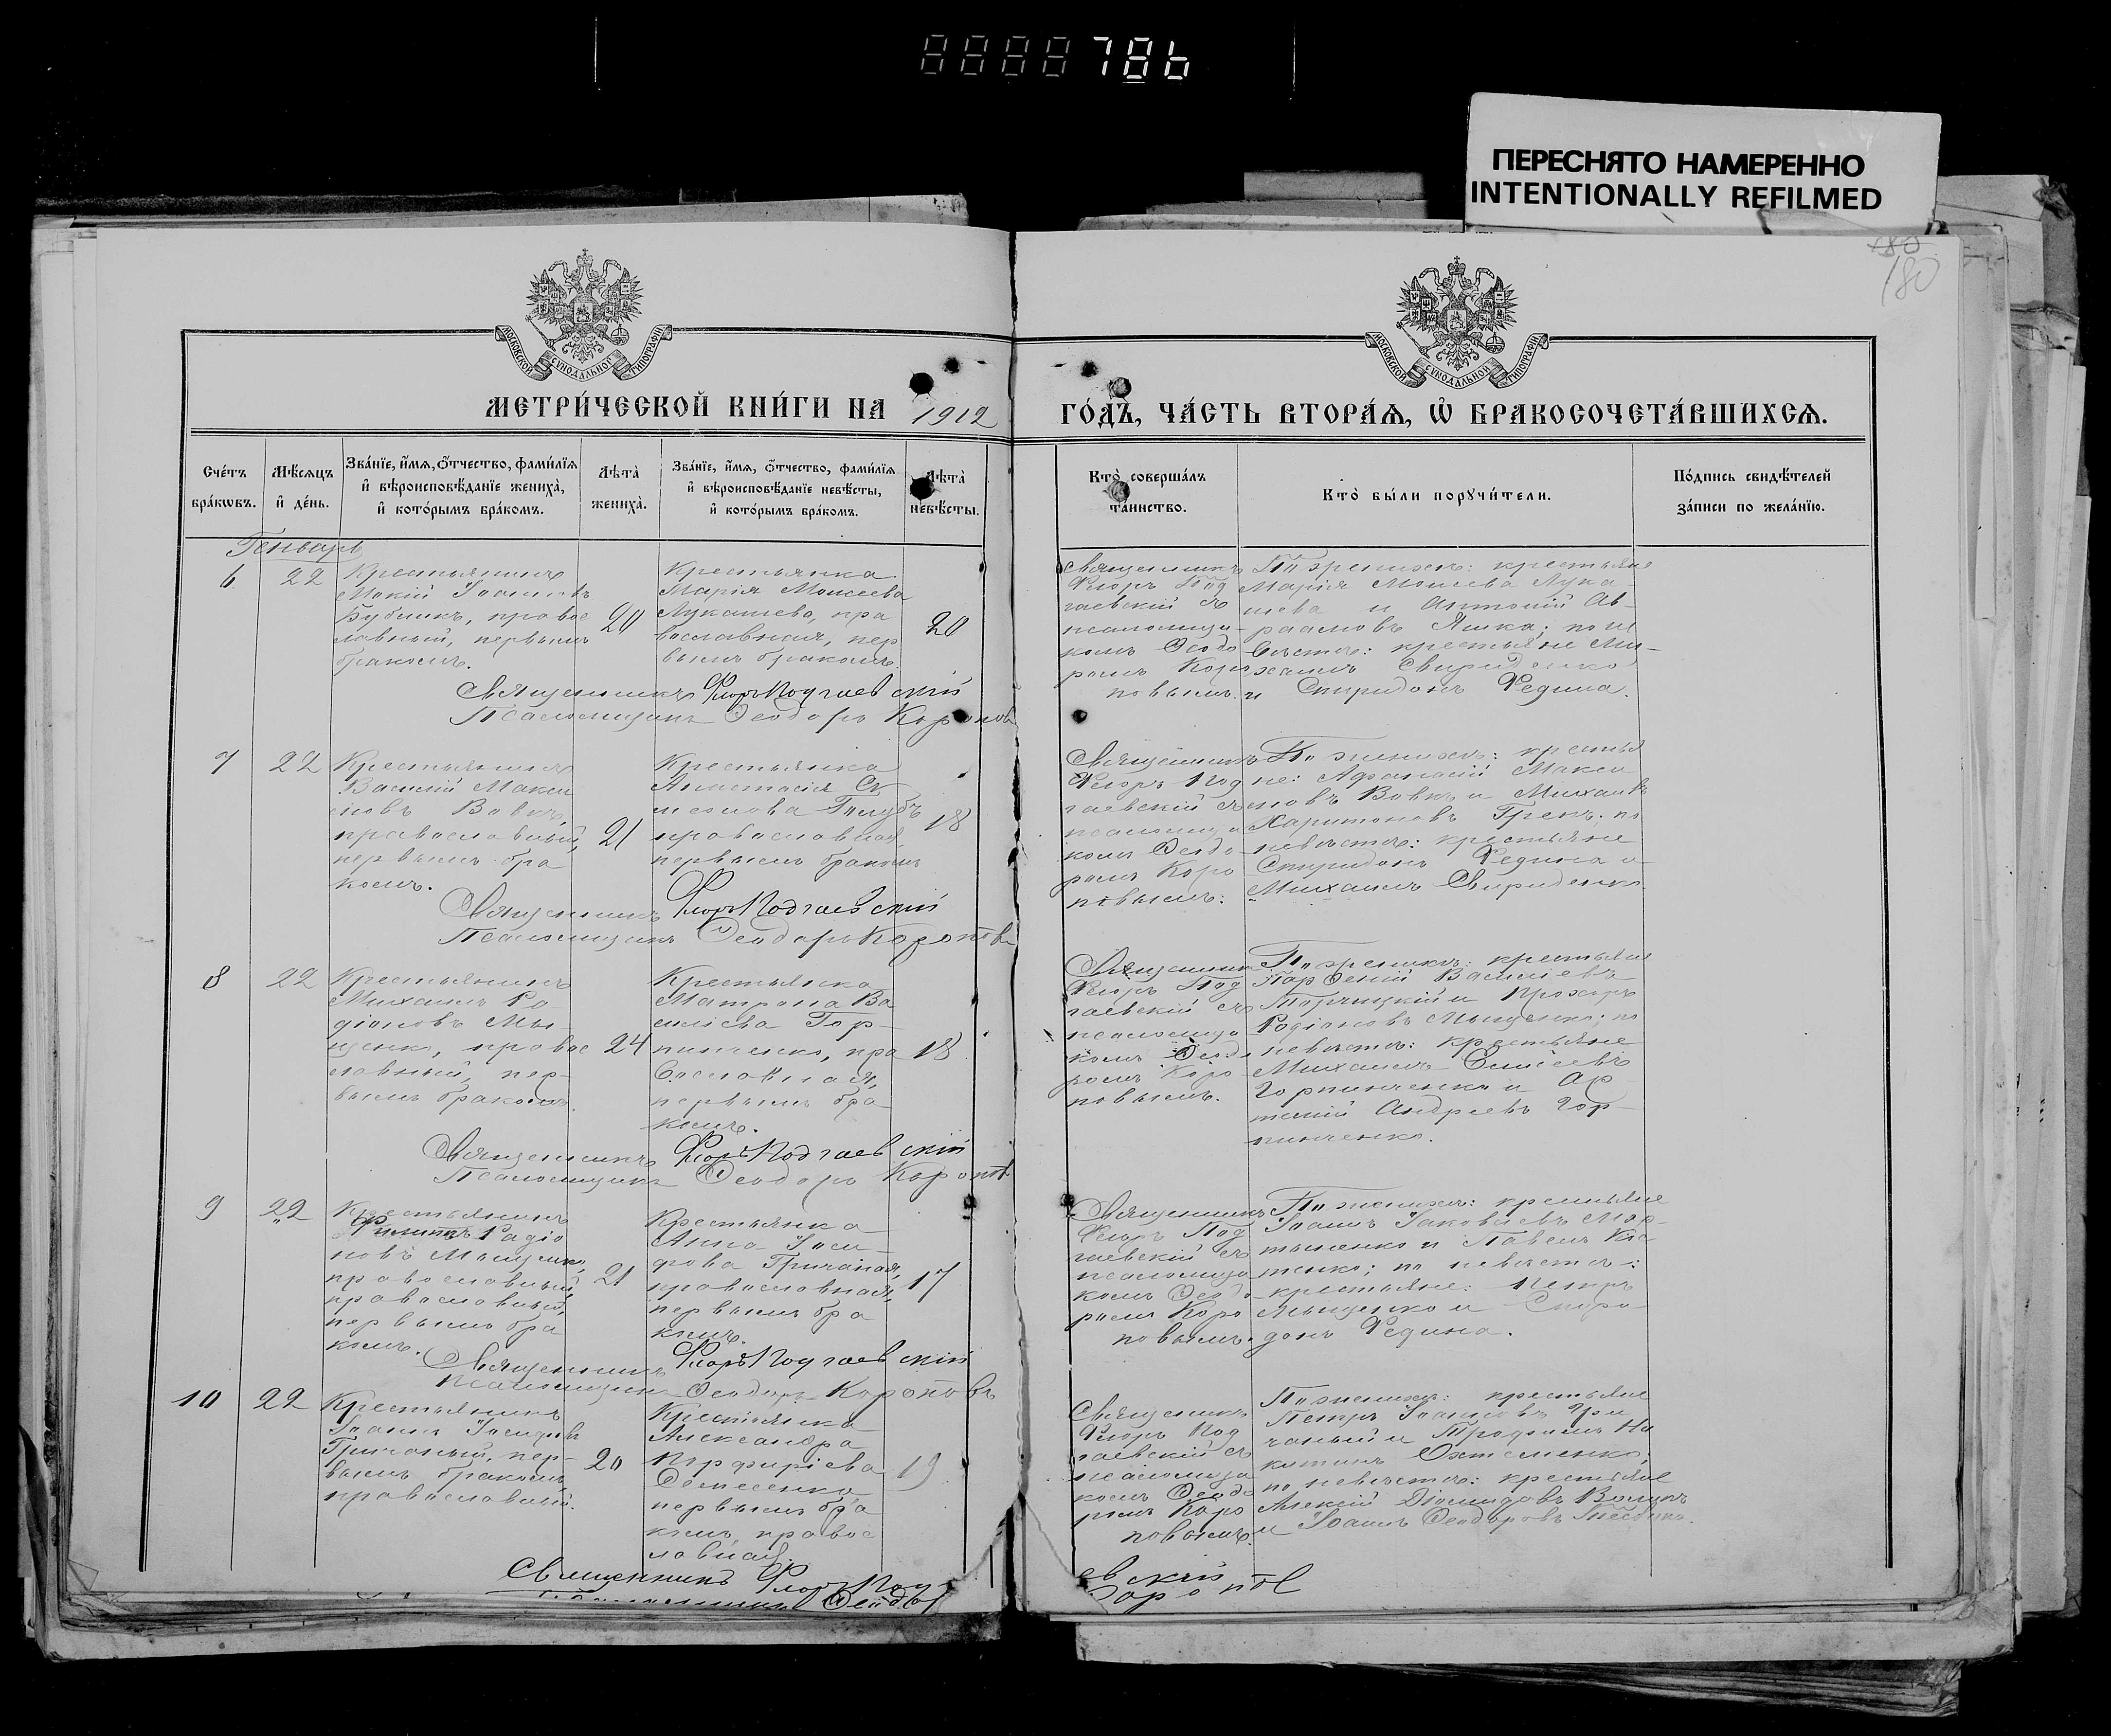 786
ПЕРЕСНЯТО НАМЕРЕННО
INTENTIONALLY REFILMED
180
180
МОСКОВСКОЙ СѴНОДАЛЬНОЙ ТИПОГРАФІИ
МОСКОВСКОЙ СѴНОДАЛЬНОЙ ТИПОГРАФІИ
МЕТРИ́ЧЕСКОЙ КНИ́ГИ НА 1912
ГО́ДЪ, ЧА́СТЬ ВТОРА́Ѧ, Ѡ҆ БРАКОСОЧЕТА́ВШИХСѦ.
Сче́тъ бра́кѡвъ.
Мѣ́сяцъ и҆ де́нь.
Зва́нїе, и҆́мѧ, ѻ҆́тчество, фами́лїѧ
и҆ вѣроисповѣ́данїе жениха̀,
и҆ кото́рымъ бра́комъ.
Лѣ́та̀ жениха̀.
Зва́нїе, и҆́мѧ, ѻ҆́тчество, фами́лїѧ
и҆ вѣроисповѣ́данїе невѣ́сты,
и҆ кото́рымъ бра́комъ.
Лѣ́та̀ невѣ́сты.
Кто̀ соверша́лъ та́инство.
Кто̀ бы́ли порꙋчи́тели.
По́дпись свидѣ́телей за́писи по жела́нїю.
Генварь
6
22
Крестьянинъ
Мокій Іоанновъ
Бублик, правос
лавный, первымъ
бракомъ.
20
Крестьянка
Марія Моисеева
Лукашева, пра
вославная, пер
вымъ бракомъ.
20
Священникъ
Флоръ Под
гаевскій съ
псаломщи-
комъ Ѳеодо
ромъ Коро
повымъ.
По женихѣ: крестьяне
Марія Моисеева Лука-
шева и Антоній Ав-
раамовъ Яшка; по не
вѣстѣ: крестьяне Ми-
хаилъ Свириденко
и Спиридонъ Редина.
Священникъ Флоръ Подгаевскій
Псаломщикъ Ѳеодоръ Коропов
7
22
Крестьянинъ
Василій Макси
мовъ Вовкъ,
православный,
первымъ бра
комъ.
21
Крестьянка
Анастасія Си
меонова Голубъ
православная
первымъ бракомъ
18
Священникъ
Флоръ Под
гаевскій съ
псаломщи
комъ Ѳеодо
ромъ Коро
повымъ.
По женихѣ: крестья
не: Аѳанасій Макси
мовъ Вовкъ и Михаилъ
Харитоновъ Грекъ; по
невѣстѣ: крестьяне
Спиридонъ Редина и
Михаилъ Свириденко
Священникъ Флоръ Подгаевскій
Псаломщикъ Ѳеодоръ Коропов
8
22
Крестьянинъ
Михаилъ Ро
діоновъ Мы-
щенко, правос
лавный, пер-
вымъ бракомъ.
24
Крестьянка
Матрона Ва
силіева Гор-
пинченко, пра
вославная,
первымъ бра
комъ.
18
Священникъ
Флоръ Под
гаевскій съ
псаломщи
комъ Ѳеодо
ромъ Коро
повымъ.
По женихѣ: крестьяне
Парѳеній Василіевъ
и Прохоръ
Родіоновъ Мыщенко; по
невѣстѣ: крестьяне
Михаилъ Елисеевъ
Горпинченко и Ар
темій Андреевъ Гор-
пинченко.
Священникъ Флоръ Подгаевскій
Псаломщикъ Ѳеодоръ Коропов
9
22
Крестьянинъ
Филиппъ Радіо
новъ Мыщенко,
православный,
православный,
первымъ бра
комъ.
21
Крестьянка
Анна Іоси-
фова Гричаная,
православная,
первымъ бра
комъ.
17
Священникъ
Флоръ Под
гаевскій съ
псаломщи
комъ Ѳеодо-
ромъ Коро
повымъ.
По женихѣ: крестьяне
Іоаннъ Іаковлевъ Мар-
тыненко и Павелъ Кос
тенко; по невѣстѣ:
крестьяне: Петръ
Мыщенко и Спири-
донъ Редина.
Священникъ Флоръ Подгаевскій
Псаломщикъ Ѳеодоръ Короповъ
10
22
Крестьянинъ
Іоаннъ Іосифовъ
Гричаный, пер-
вымъ бракомъ,
православный.
20
Крестьянка
Александра
Порфиріева
первымъ бра
комъ, правос
лавная.
19
Священникъ
Флоръ Под
гаевскій съ
псаломщи
комъ Ѳеодо
ромъ Коро
повымъ.
По женихѣ: крестьяне
Петръ Іоанновъ Гри
чаный и Трофимъ Ни
китинъ Охтеменко;
по невѣстѣ: крестьяне
Алексій Діомидовъ
и Іоаннъ Ѳеодоровъ
Священникъ Флоръ Подгаевскій
Псаломщикъ Ѳеодоръ Коропов